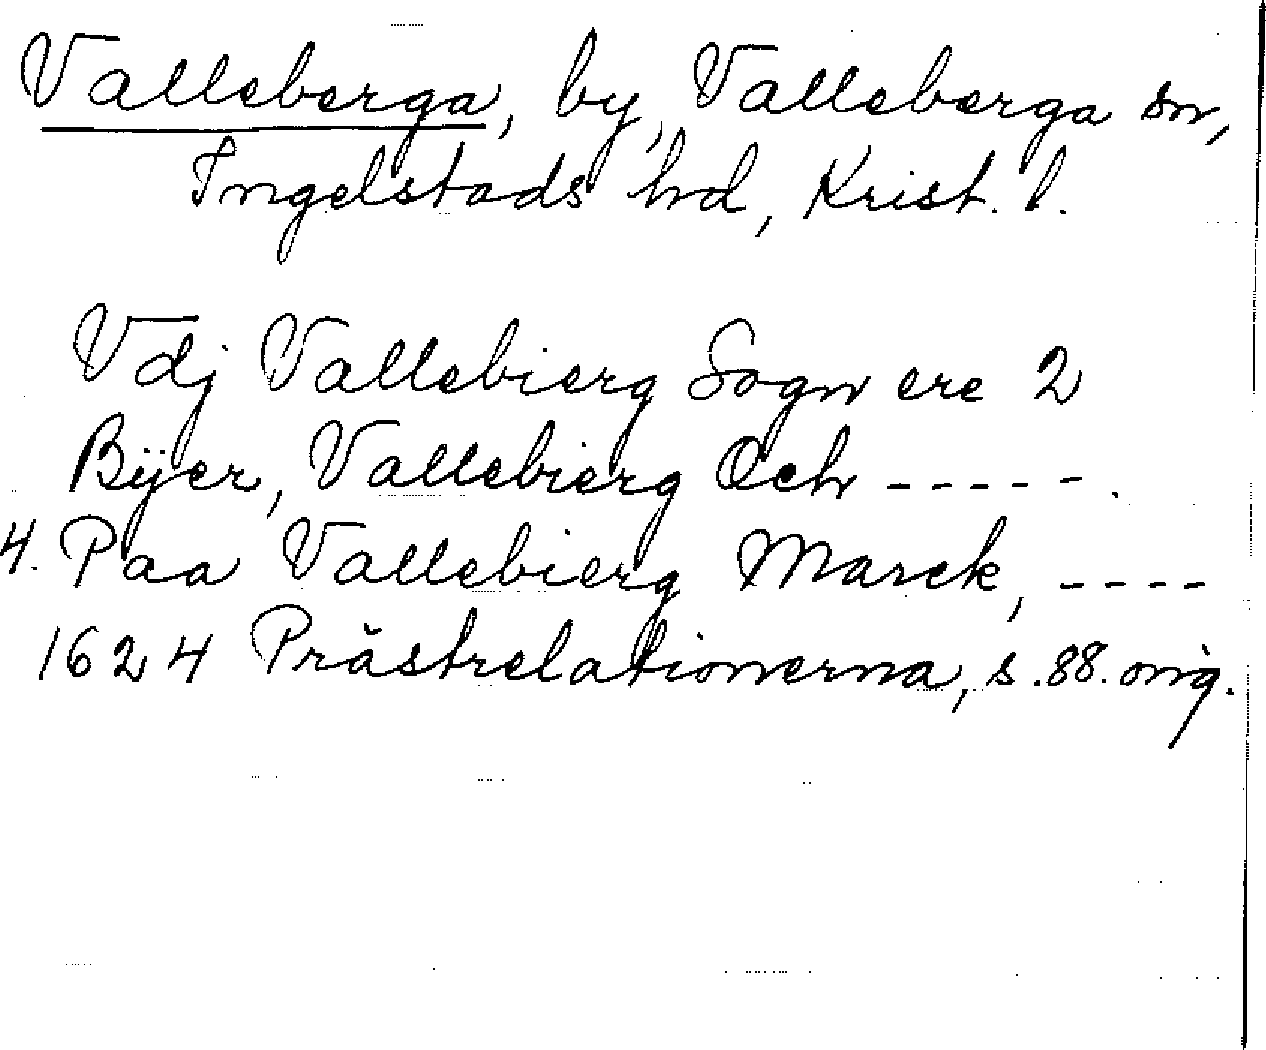 Valleberga, by, Valleberga sn,
Ingelstads hd, Krist. l.
Vdj Vallebierg Sogn ere 2
Bÿer, Vallebierg Och - - - - - .
4. Paa Vallebierg Marck, - - - -
1624 Prästrelationerna, s. 88. orig.